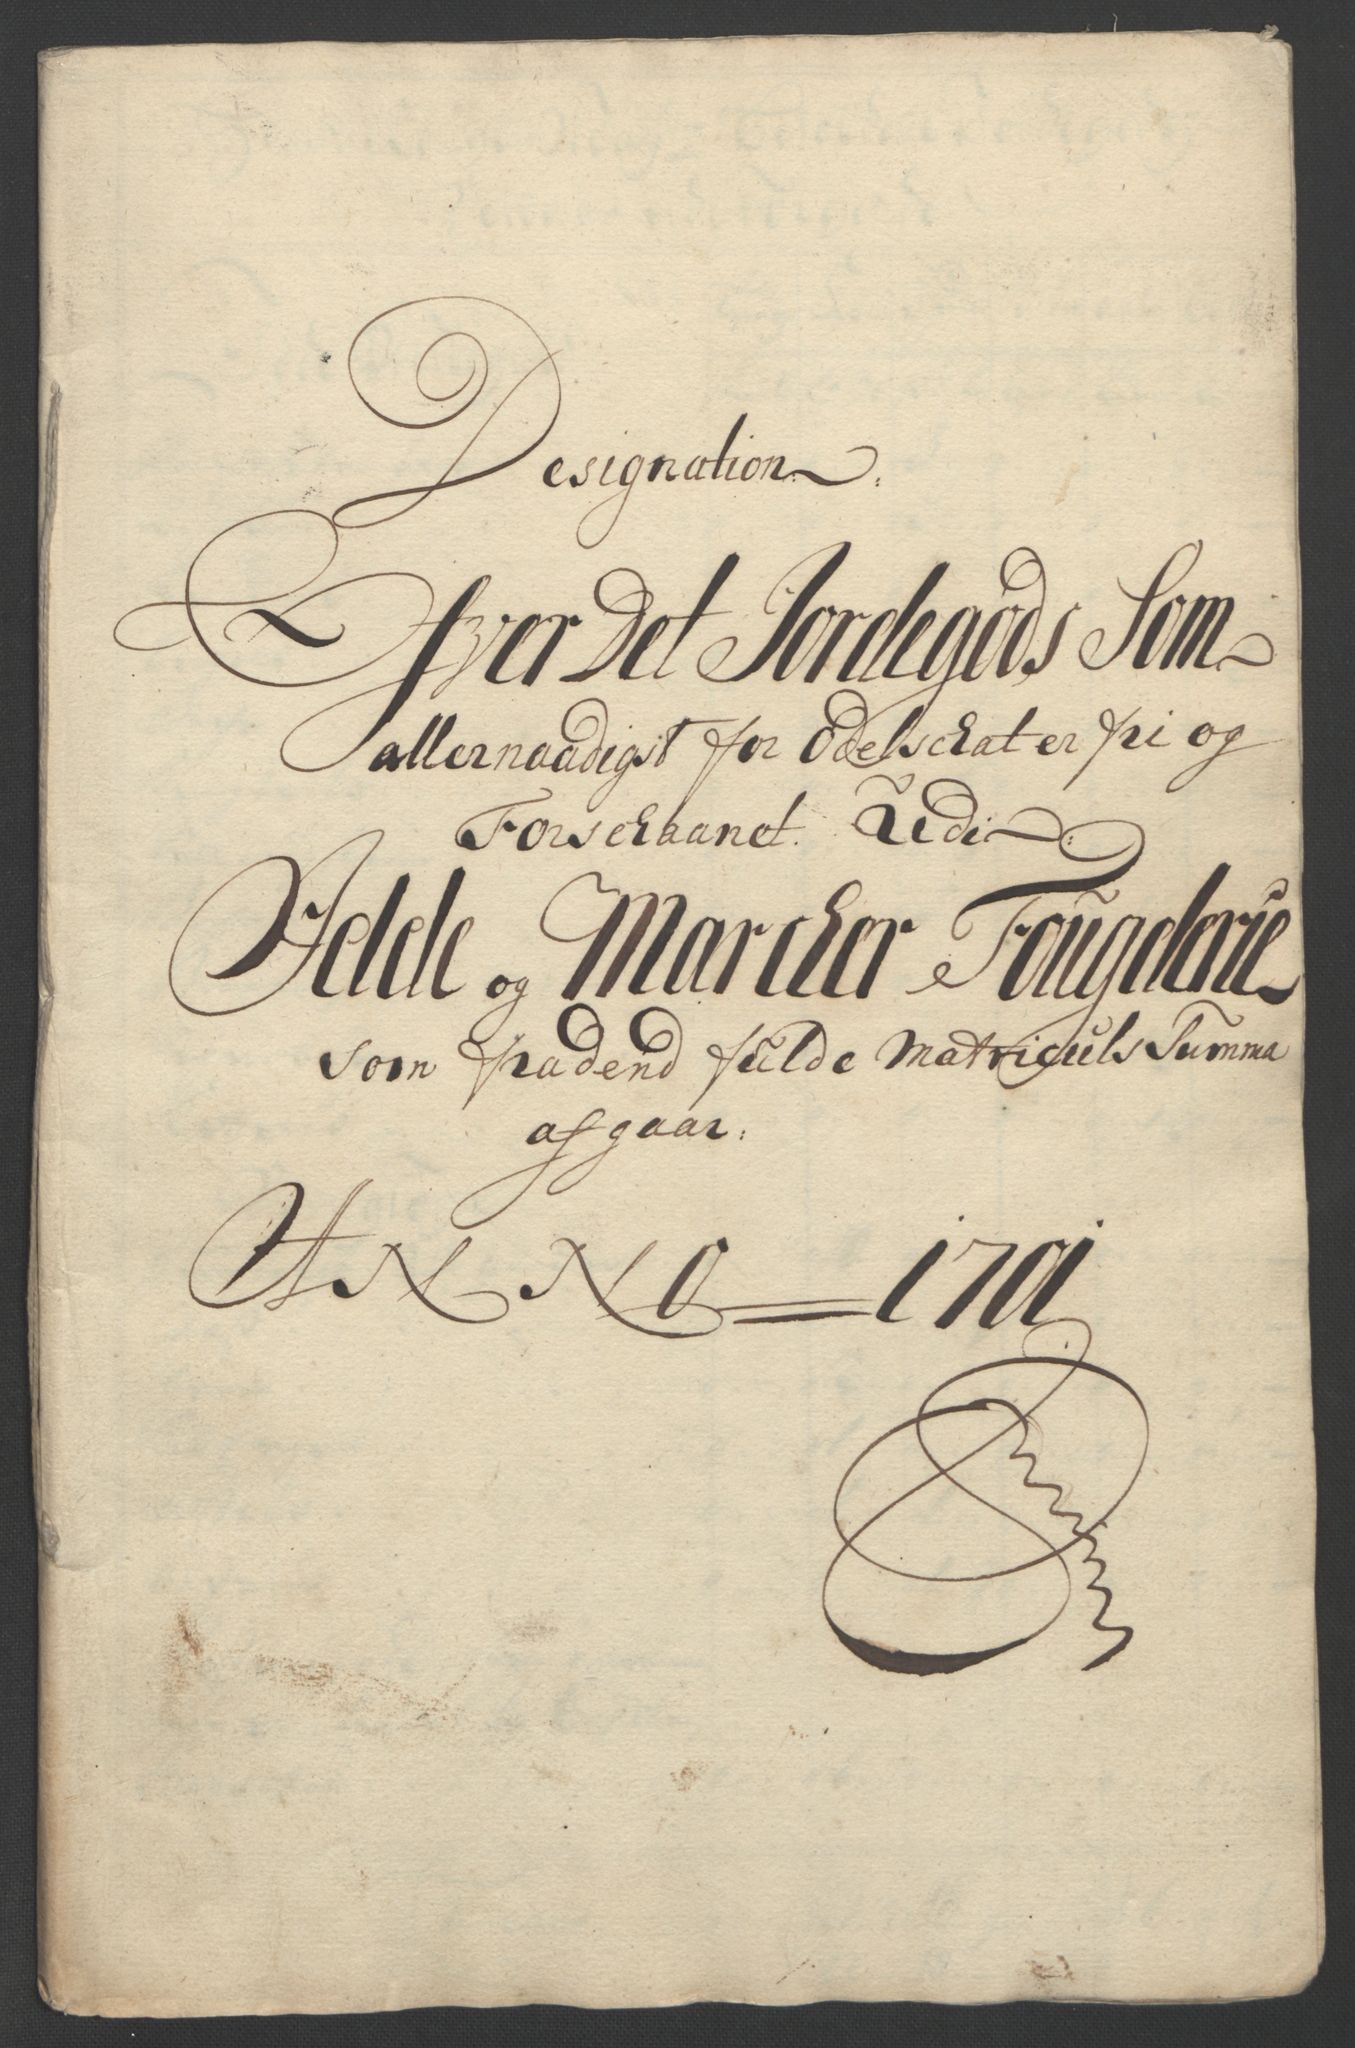 Designation.
Ofver Det Jordegods Som
allernaadigst for Odelschat er fri og
Forschaanet. Udi
Idde og Marcher Fougderie
som fra dend fulde Matriculs Summa
afgaar.
ANNO 1701